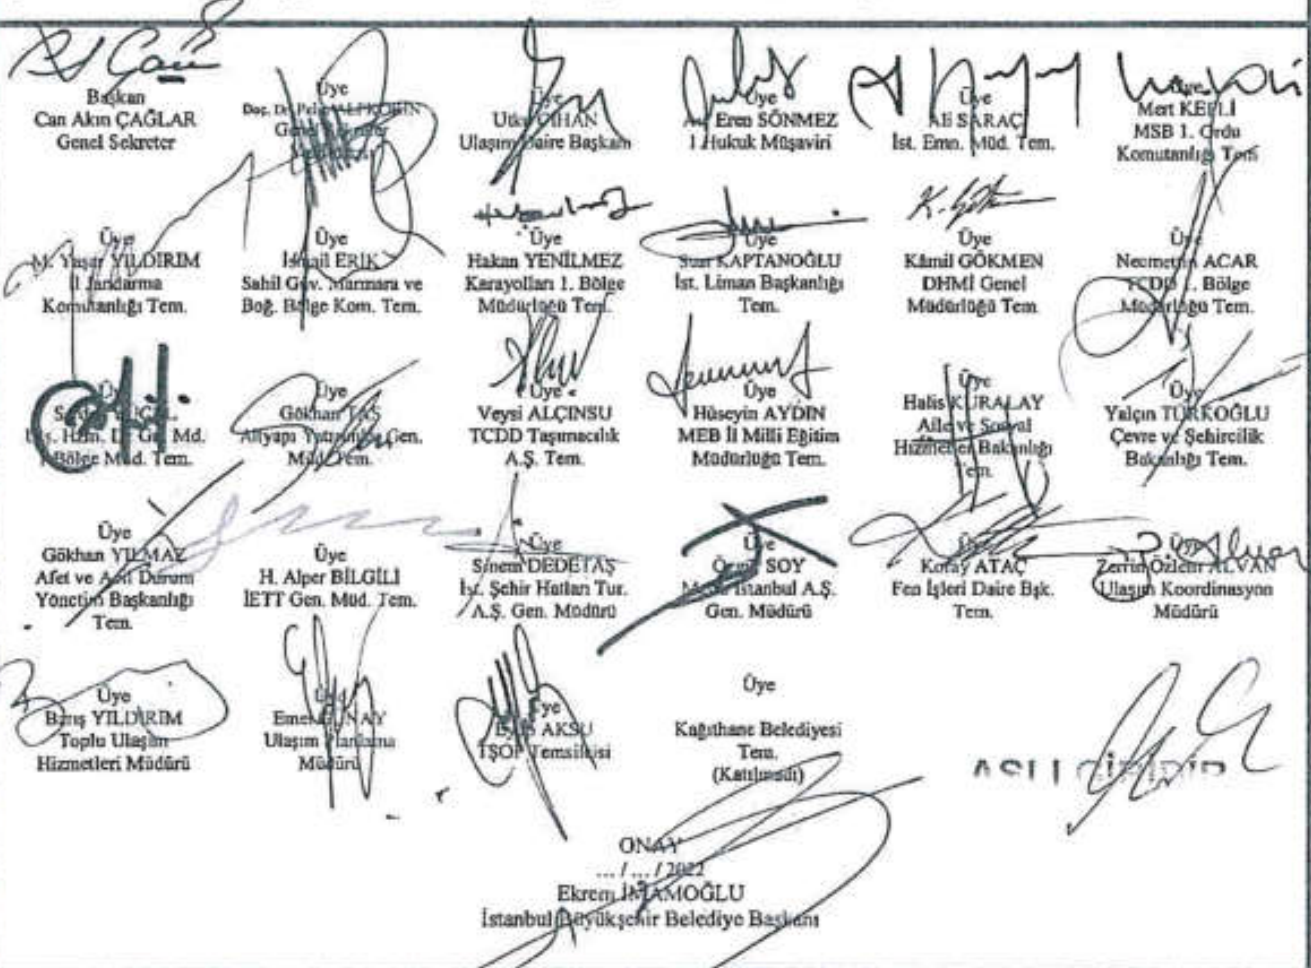 Başkan
Can Akın ÇAĞLAR
Genel Sekreter
Üye
Doç. Dr. Pelin ALPKÖKİN
Genel Sekreter
Üye
Utku CİHAN
Ulaşım Daire Başkanı
Üye
Eren SÖNMEZ
1.Hukuk Müşaviri
Üye
Ali SARAÇ
İst. Emn. Müd. Tem.
Üye
Mert KEFLİ
MSB 1. Ordu
Komutanlığı Tem
Üye
M. Yaşar YILDIRIM
İl Jandarma
Komutanlığı Tem.
Üye
İsmail ERİK
Sahil Güv. Marmara ve
Boğ. Bölge Kom. Tem.
Üye
Hakan YENİLMEZ
Karayolları 1. Bölge
Müdürlüğü Tem.
Üye
Suat KAPTANOĞLU
İst. Liman Başkanlığı
Tem.
Üye
Kâmil GÖKMEN
DHMİ Genel
Müdürlüğü Tem.
Üye
Necmettin ACAR
TCDD 1. Bölge
Müdürlüğü Tem.
Üye
Md.
Bölge Müd. Tem.
Üye
Gökhan TAŞ
Altyapı Yatırımları Gen.
Müd. Tem.
Üye
Veysi ALÇINSU
TCDD Taşımacılık
A.Ş. Tem.
Üye
Hüseyin AYDIN
MEB İl Milli Eğitim
Müdürlüğü Tem.
Üye
Halis KURALAY
Aile ve Sosyal
Hizmetler Bakanlığı
Tem.
Üye
Yalçın TÜRKOĞLU
Çevre ve Şehircilik
Bakanlığı Tem.
Üye
Gökhan YILMAZ
Afet ve Acil Durum
Yönetim Başkanlığı
Tem.
Üye
H. Alper BİLGİLİ
İETT Gen. Müd. Tem.
Üye
Sinem DEDETAŞ
İst. Şehir Hatları Tur.
A.Ş. Gen. Müdürü
Üye
Özgür SOY
Metro İstanbul A.Ş.
Gen. Müdürü
Üye
Koray ATAÇ
Fen İşleri Daire Bşk.
Tem.
Üye
Zerrin Özlem ALVAN
Ulaşım Koordinasyon
Müdürü
Üye
Barış YILDIRIM
Toplu Ulaşım
Hizmetleri Müdürü
Üye
Emel GÜNAY
Ulaşım Planlama
Müdürü
Üye
AKSU
TŞOF Temsilcisi
Üye
Kağıthane Belediyesi
Tem.
(Katılmadı)
ASLI GİBİDİR
ONAY
... / ... / 2022
Ekrem İMAMOĞLU
İstanbul Büyükşehir Belediye Başkanı